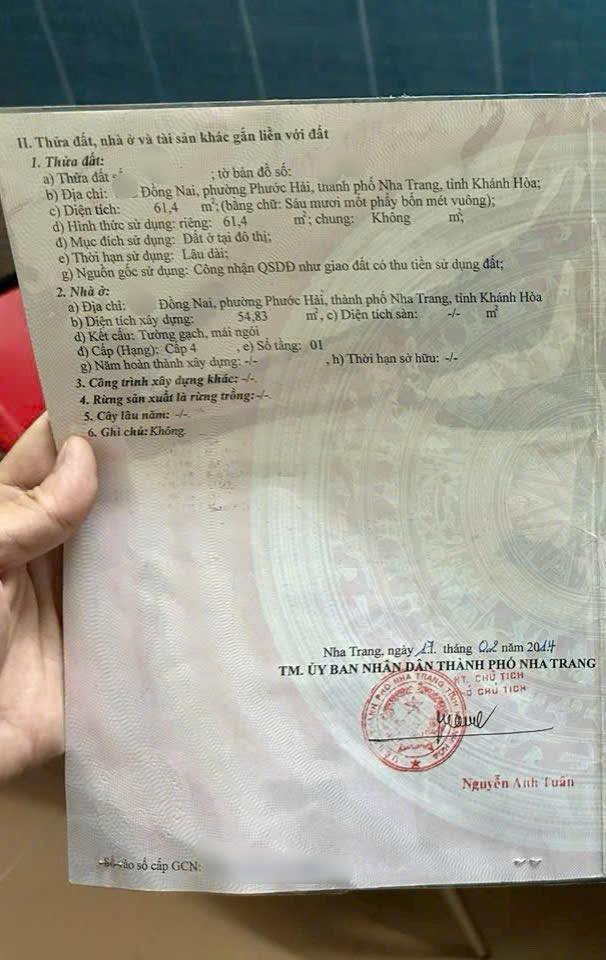 II. Thửa đất, nhà ở và tài sản khác gắn liền với đất
1. Thửa đất:
a) Thửa đất ; tờ bản đồ số:
b) Địa chỉ: Đồng Nai, phường Phước Hải, thành phố Nha Trang, tỉnh Khánh Hòa;
c) Diện tích: 61,4 m²; (bằng chữ: Sáu mươi mốt phẩy bốn mét vuông);
d) Hình thức sử dụng: riêng: 61,4 m²; chung: Không m²;
đ) Mục đích sử dụng: Đất ở tại đô thị;
e) Thời hạn sử dụng: Lâu dài;
g) Nguồn gốc sử dụng: Công nhận QSDĐ như giao đất có thu tiền sử dụng đất;
2. Nhà ở:
a) Địa chỉ: Đồng Nai, phường Phước Hải, thành phố Nha Trang, tỉnh Khánh Hòa
b) Diện tích xây dựng: 54,83 m², c) Diện tích sàn: -/- m²
d) Kết cấu: Tường gạch, mái ngói
đ) Cấp (Hạng): Cấp 4 , e) Số tầng: 01
g) Năm hoàn thành xây dựng: -/- , h) Thời hạn sở hữu: -/-
3. Công trình xây dựng khác: -/-.
4. Rừng sản xuất là rừng trồng:-/-.
5. Cây lâu năm: -/-
6. Ghi chú: Không.
Nha Trang, ngày 17. tháng 02 năm 2014
TM. ỦY BAN NHÂN DÂN THÀNH PHỐ NHA TRANG
KT. CHỦ TỊCH
CHỦ TỊCH
Nguyễn Anh Tuấn
Số vào sổ cấp GCN: